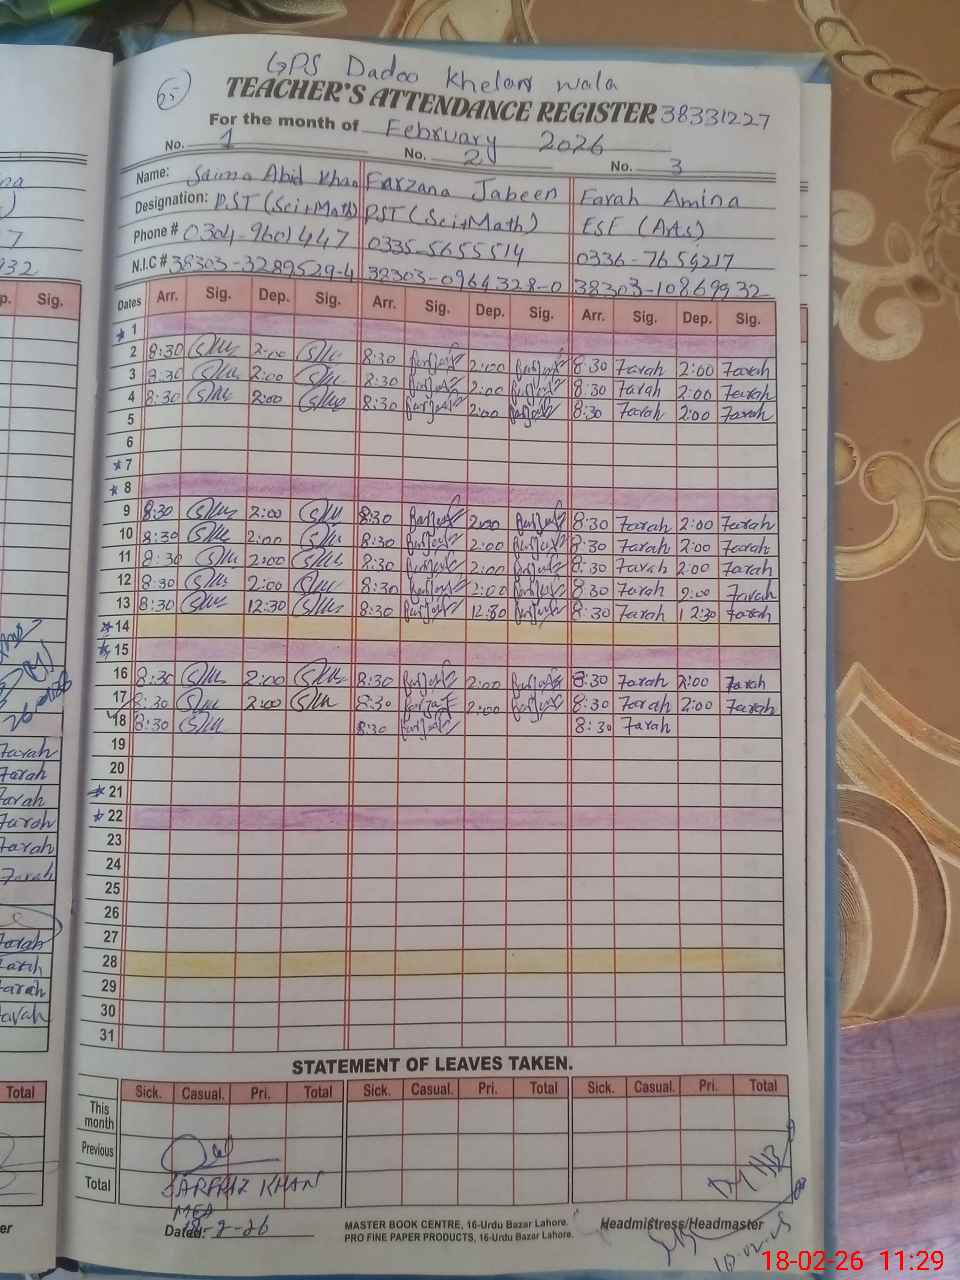 55
GPS Dadoo Khelan wala
TEACHER'S ATTENDANCE REGISTER 38331227
For the month of February 2026
No. 1 No. 2 No. 3
Name: Saima Abid Khan Farzana Jabeen Farah Amina
Designation: PST (Sci+Math) PST (Sci+Math) ESE (Arts)
Phone # 0304-9601447 0335-5655514 0336-7659217
N.I.C # 38303-3289529-4 38303-0964328-0 38303-10869932
Dates Arr. Sig. Dep. Sig. Arr. Sig. Dep. Sig. Arr. Sig. Dep. Sig.
1
2 8:30 2:00 8:30 2:00 8:30 Farah 2:00 Farah
3 8:30 2:00 8:30 2:00 8:30 Farah 2:00 Farah
4 8:30 2:00 8:30 2:00 8:30 Farah 2:00 Farah
5
6
7
8
9 8:30 2:00 8:30 2:00 8:30 Farah 2:00 Farah
10 8:30 2:00 8:30 2:00 8:30 Farah 2:00 Farah
11 8:30 2:00 8:30 2:00 8:30 Farah 2:00 Farah
12 8:30 2:00 8:30 2:00 8:30 Farah 2:00 Farah
13 8:30 12:30 8:30 12:30 8:30 Farah 12:30 Farah
14
15
16 8:30 2:00 8:30 2:00 8:30 Farah 2:00 Farah
17 8:30 2:00 8:30 2:00 8:30 Farah 2:00 Farah
18 8:30 8:30 8:30 Farah
19
20
21
22
23
24
25
26
27
28
29
30
31
STATEMENT OF LEAVES TAKEN.
Sick. Casual. Pri. Total Sick. Casual. Pri. Total Sick. Casual. Pri. Total
This month
Previous
Total
SARFRAZ KHAN
Dated: 18-2-26
MASTER BOOK CENTRE, 16-Urdu Bazar Lahore.
PRO FINE PAPER PRODUCTS, 16-Urdu Bazar Lahore.
Headmistress/Headmaster
18-02-26 11:29